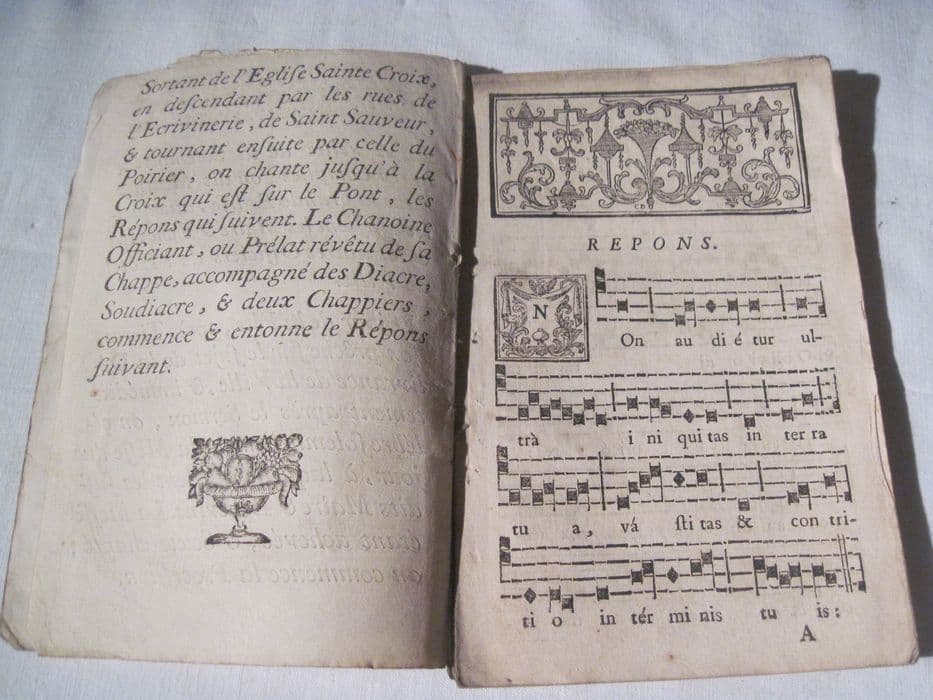 Sortant de l'Egliſe Sainte Croix,
en deſcendant par les rues de
l'Ecrivinerie, de Saint Sauveur,
& tournant enſuite par celle du
Poirier, on chante juſqu'à la
Croix qui eſt ſur le Pont, les
Répons qui ſuivent. Le Chanoine
Officiant, ou Prélat révêtu de ſa
Chappe, accompagné des Diacre,
Soudiacre, & deux Chappiers,
commence & entonne le Répons
ſuivant.
REPONS.
N
On au di é tur ul-
trà i ni qui tas in ter ra
tu a, vá ſti tas & con tri-
ti o in tér mi nis tu is:
A